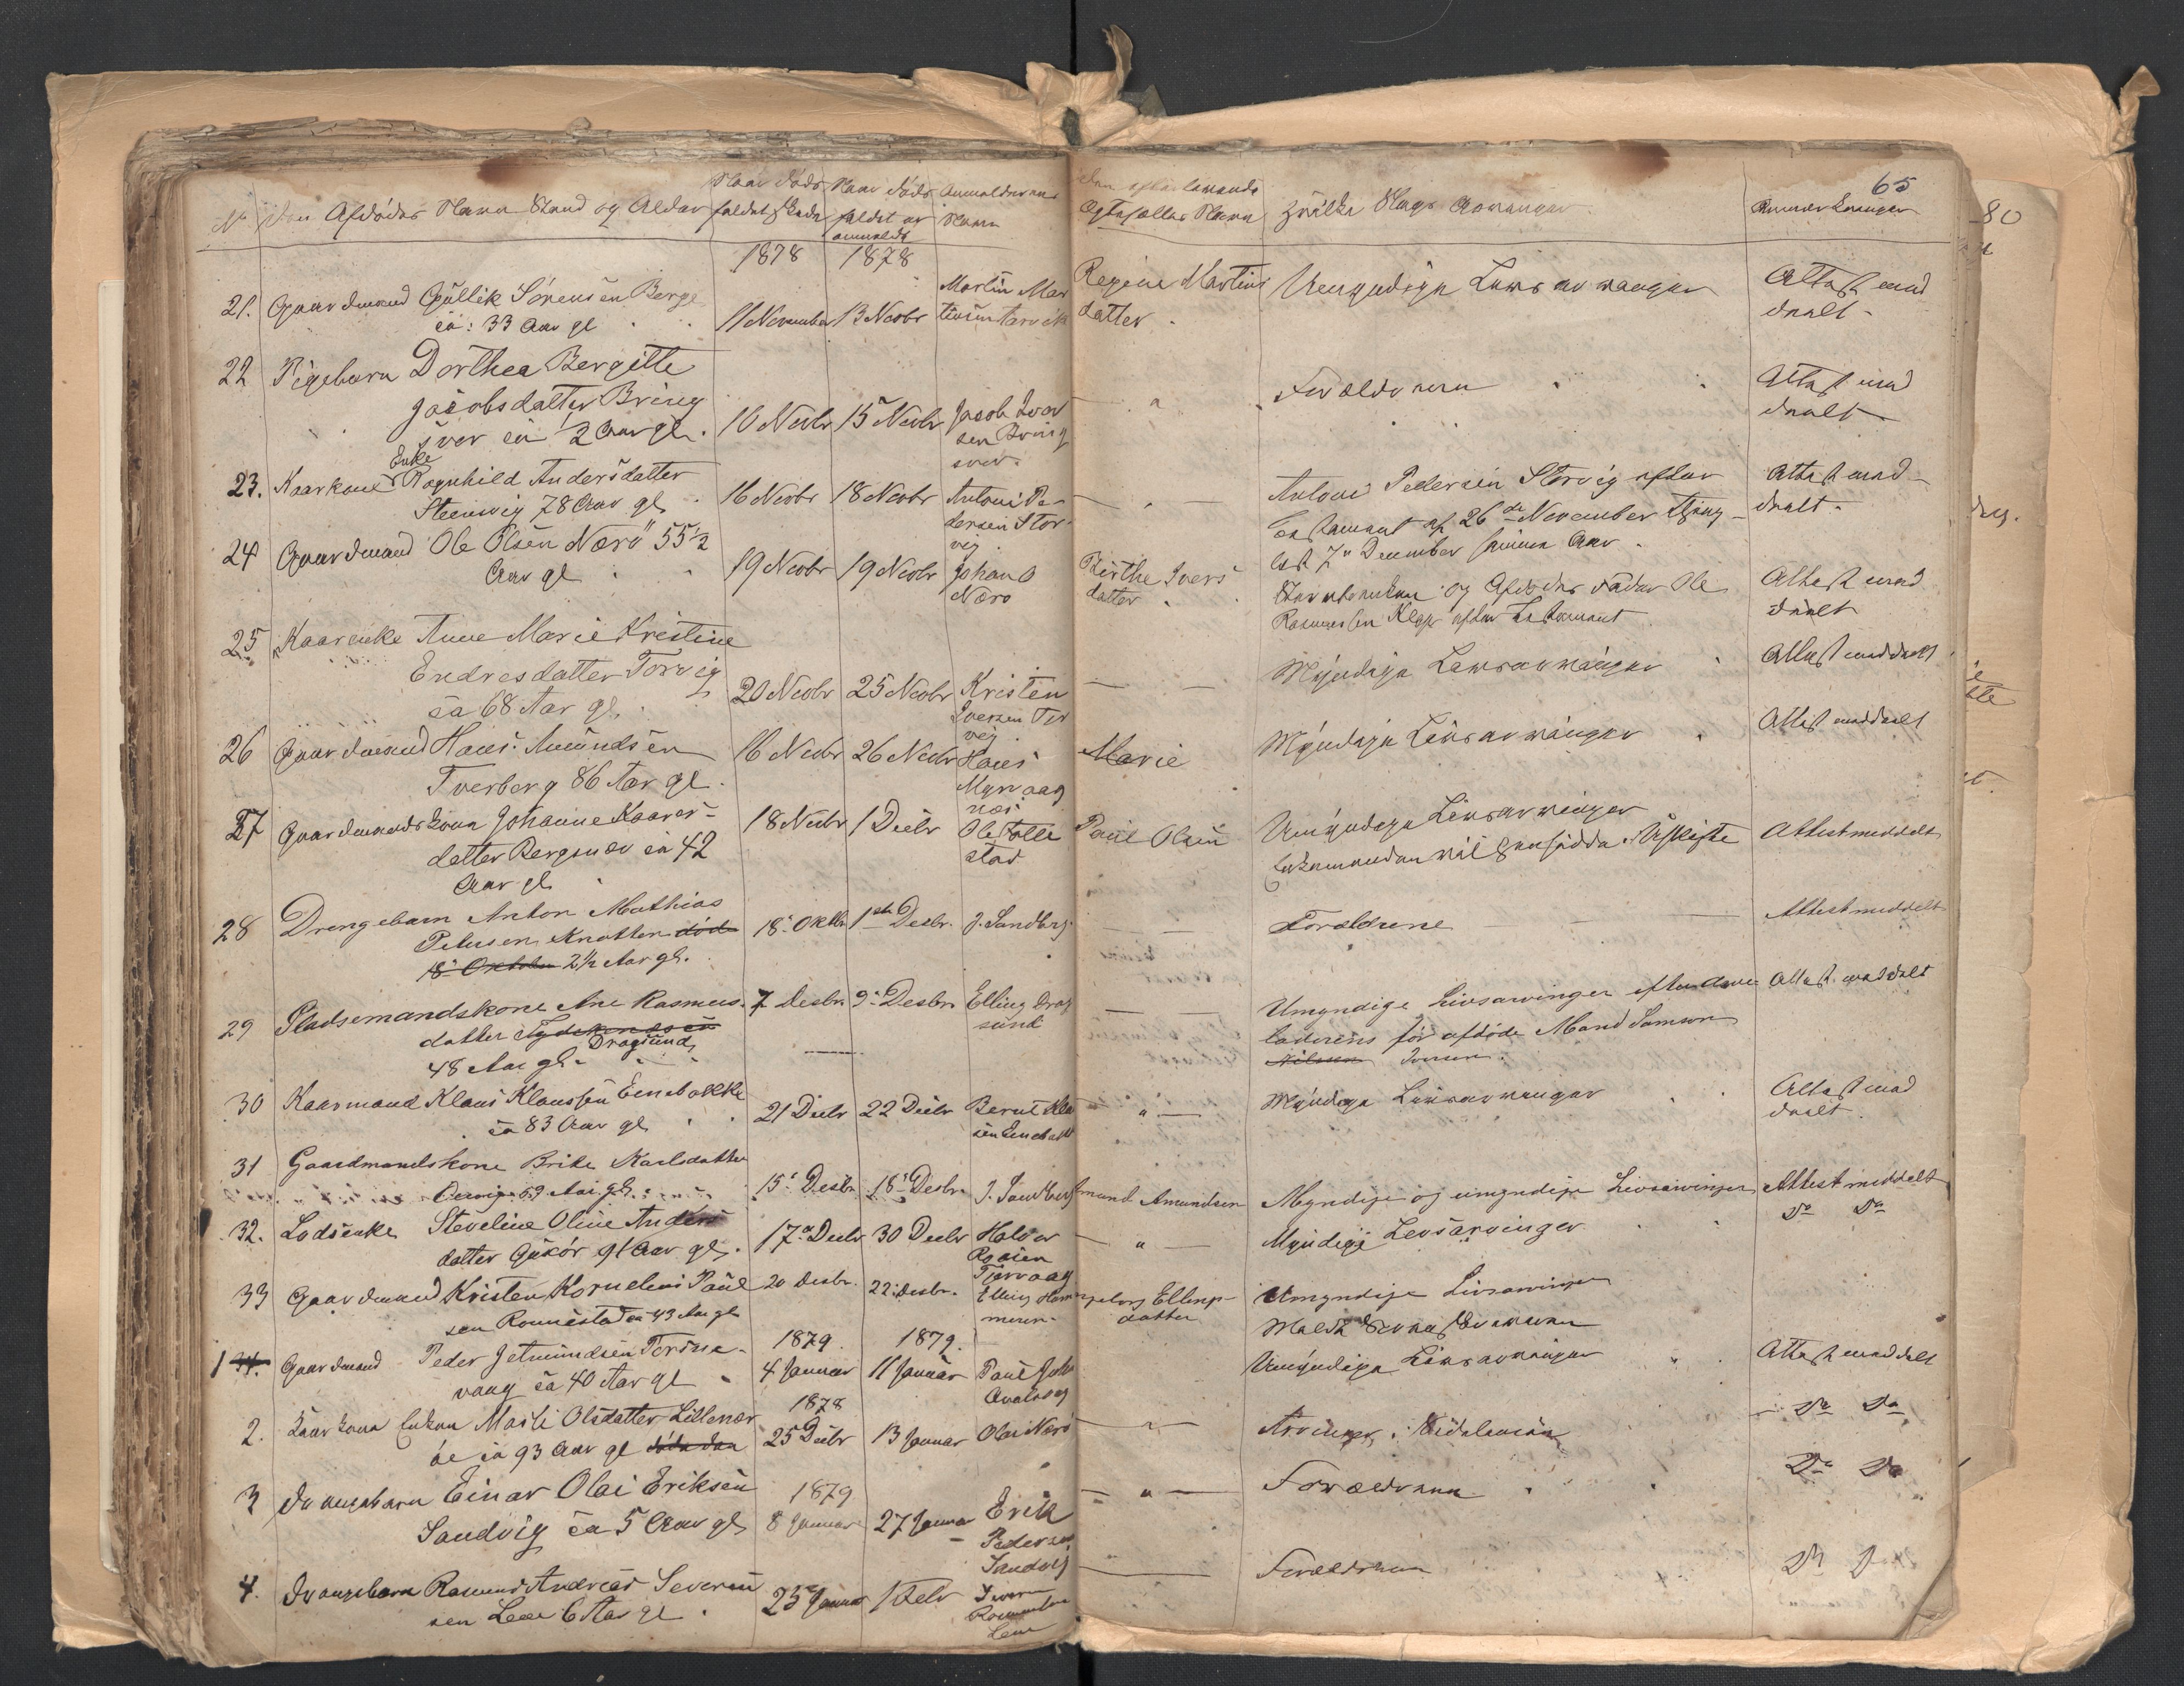 65
No Den Afdödes Navn Stand og Alder
Naar Döds faldet skede
Naar Döds faldet er anmeldt
Anmelderens Navn
Den efterlevende Ægtefælles Navn
Hvilke Slags Arvinger
Anmærkninger
1878 1878
21. Gaardmand Gullik Sörensen Berge
ca: 33 Aar gl
11 November 13 Novbr
Martin Mar
tinsen Larvik
Regine Martins
datter
Umyndige Livsarvinger
Attest med
deelt
22 Pigebarn Dorthea Bergitte
Jacobsdatter Bring
svor ca 2 Aar gl.
10 Novbr 15 Novbr
Jacob Iver
sen Bring
svor.
Forældrene
Attest med
deelt
23. Kaarkone Enke Ragnhild Andersdatter
Steenvig 78 Aar gl
16 Novbr 18 Novbr
Antoni Pe-
dersen Stor-
vig
Antoni Pedersen Storvig efter
Testament af 26de November Thing-
læst 7de December samme Aar.
Attest med-
deelt.
24 Gaardmand Ole Olsen Nærö 55 1/2
Aar gl
19 Novbr 19 Novbr
Johan O
Nærö
Birthe Ivers
datter
og Afdödes Fader Ole
Rasmussen efter Testament
Attest med
deelt
25 Kaarenke Anne Marie Kristine
Endresdatter Torvig
ca 68 Aar gl.
20 Novbr 25 Novbr
Kristen
Iversen Tor
vig
Myndige Livsarvinger
Attest meddelt
26 Gaardmand Hans Amundsen
Tverberg 86 Aar gl.
16 Novbr 26 Novbr
Hans
Myrvaag
næs
Marie
Myndige Livsarvinger
Attest meddeelt
27 Gaardmandskone Johanne Kaares-
datter Bergsnæs ca 42
Aar gl
18 Novbr 1 Decbr
Ole Tolle
stad
Paul Olsen
Umyndige Livsarvinger
Enkemanden vil hensidde i Uskifte
Attest meddelt
28 Drengebarn Anton Mathias
Petersen Knotten död
18 Oktober 2 1/2 Aar gl.
18 Oktbr 1ste Decbr. J. Sandberg
Forældrene
Attest meddelt
29 Pladsemandskone Ane Rasmus-
datter Dragsund
48 Aar gl.
7 Desbr. 9 Desbr.
Elling Drag
sund
Umyndige Livsarvinger efter denne
för afdöde Mand Samson
Nilssen Iversen.
Attest meddelt
30 Kaarmand Klaus Klaussen Eenebakke
ca 83 Aar gl
21 Decbr 22 Decbr
Bernt Klau
sen Eneback
Myndige Livsarvinger
Attest med
deelt.
31 Gaardmandskone Brite Karlsdatter
59 Aar gl.
15 Desbr. 18 Desbr. J. Sandberg
Amund Amundsen
Myndige og umyndige Livsarvinger
Attest meddelt
32. Lodsenke Steveline Oline Anders
datter Gjukör 91 Aar gl.
17de Decbr 30 Decbr
Halvor
Tjervaag
Myndige Levsarvinger
Do Do
33 Gaardmand Kristen Kornelius Paul
sen Rönnestad ca 43 Aar gl
20 desbr. 22 desbr.
Elling
Ellings-
datter
Umyndige Livsarvinger
1879. 1879.
1 34. Gaardmand Peder Jetmundsen Törne-
vaag ca 40 Aar gl
4 Januar 11 Januar
Paul
Umyndige Livsarvinger
Attest meddelt
1878
2. Kaarkone Enken Marli Olsdatter Lillenær
öe ca 93 Aar gl döde den
25 Decbr 13 Januar Olai Nærö
Arvinger i Sidelinien
Do Do
1879
3 Drengebarn Einar Olai Eriksen
Sandvig ca 5 Aar gl
8 Januar 27 Januar
Erik
Pedersen
Sandvig
Forældrene
Do Do
4. Drengebarn Rasmus Andreas Severin
sen Leine 6 Aar gl.
23 Januar 1 Febr
Leine
Forældrene
Do Do
80